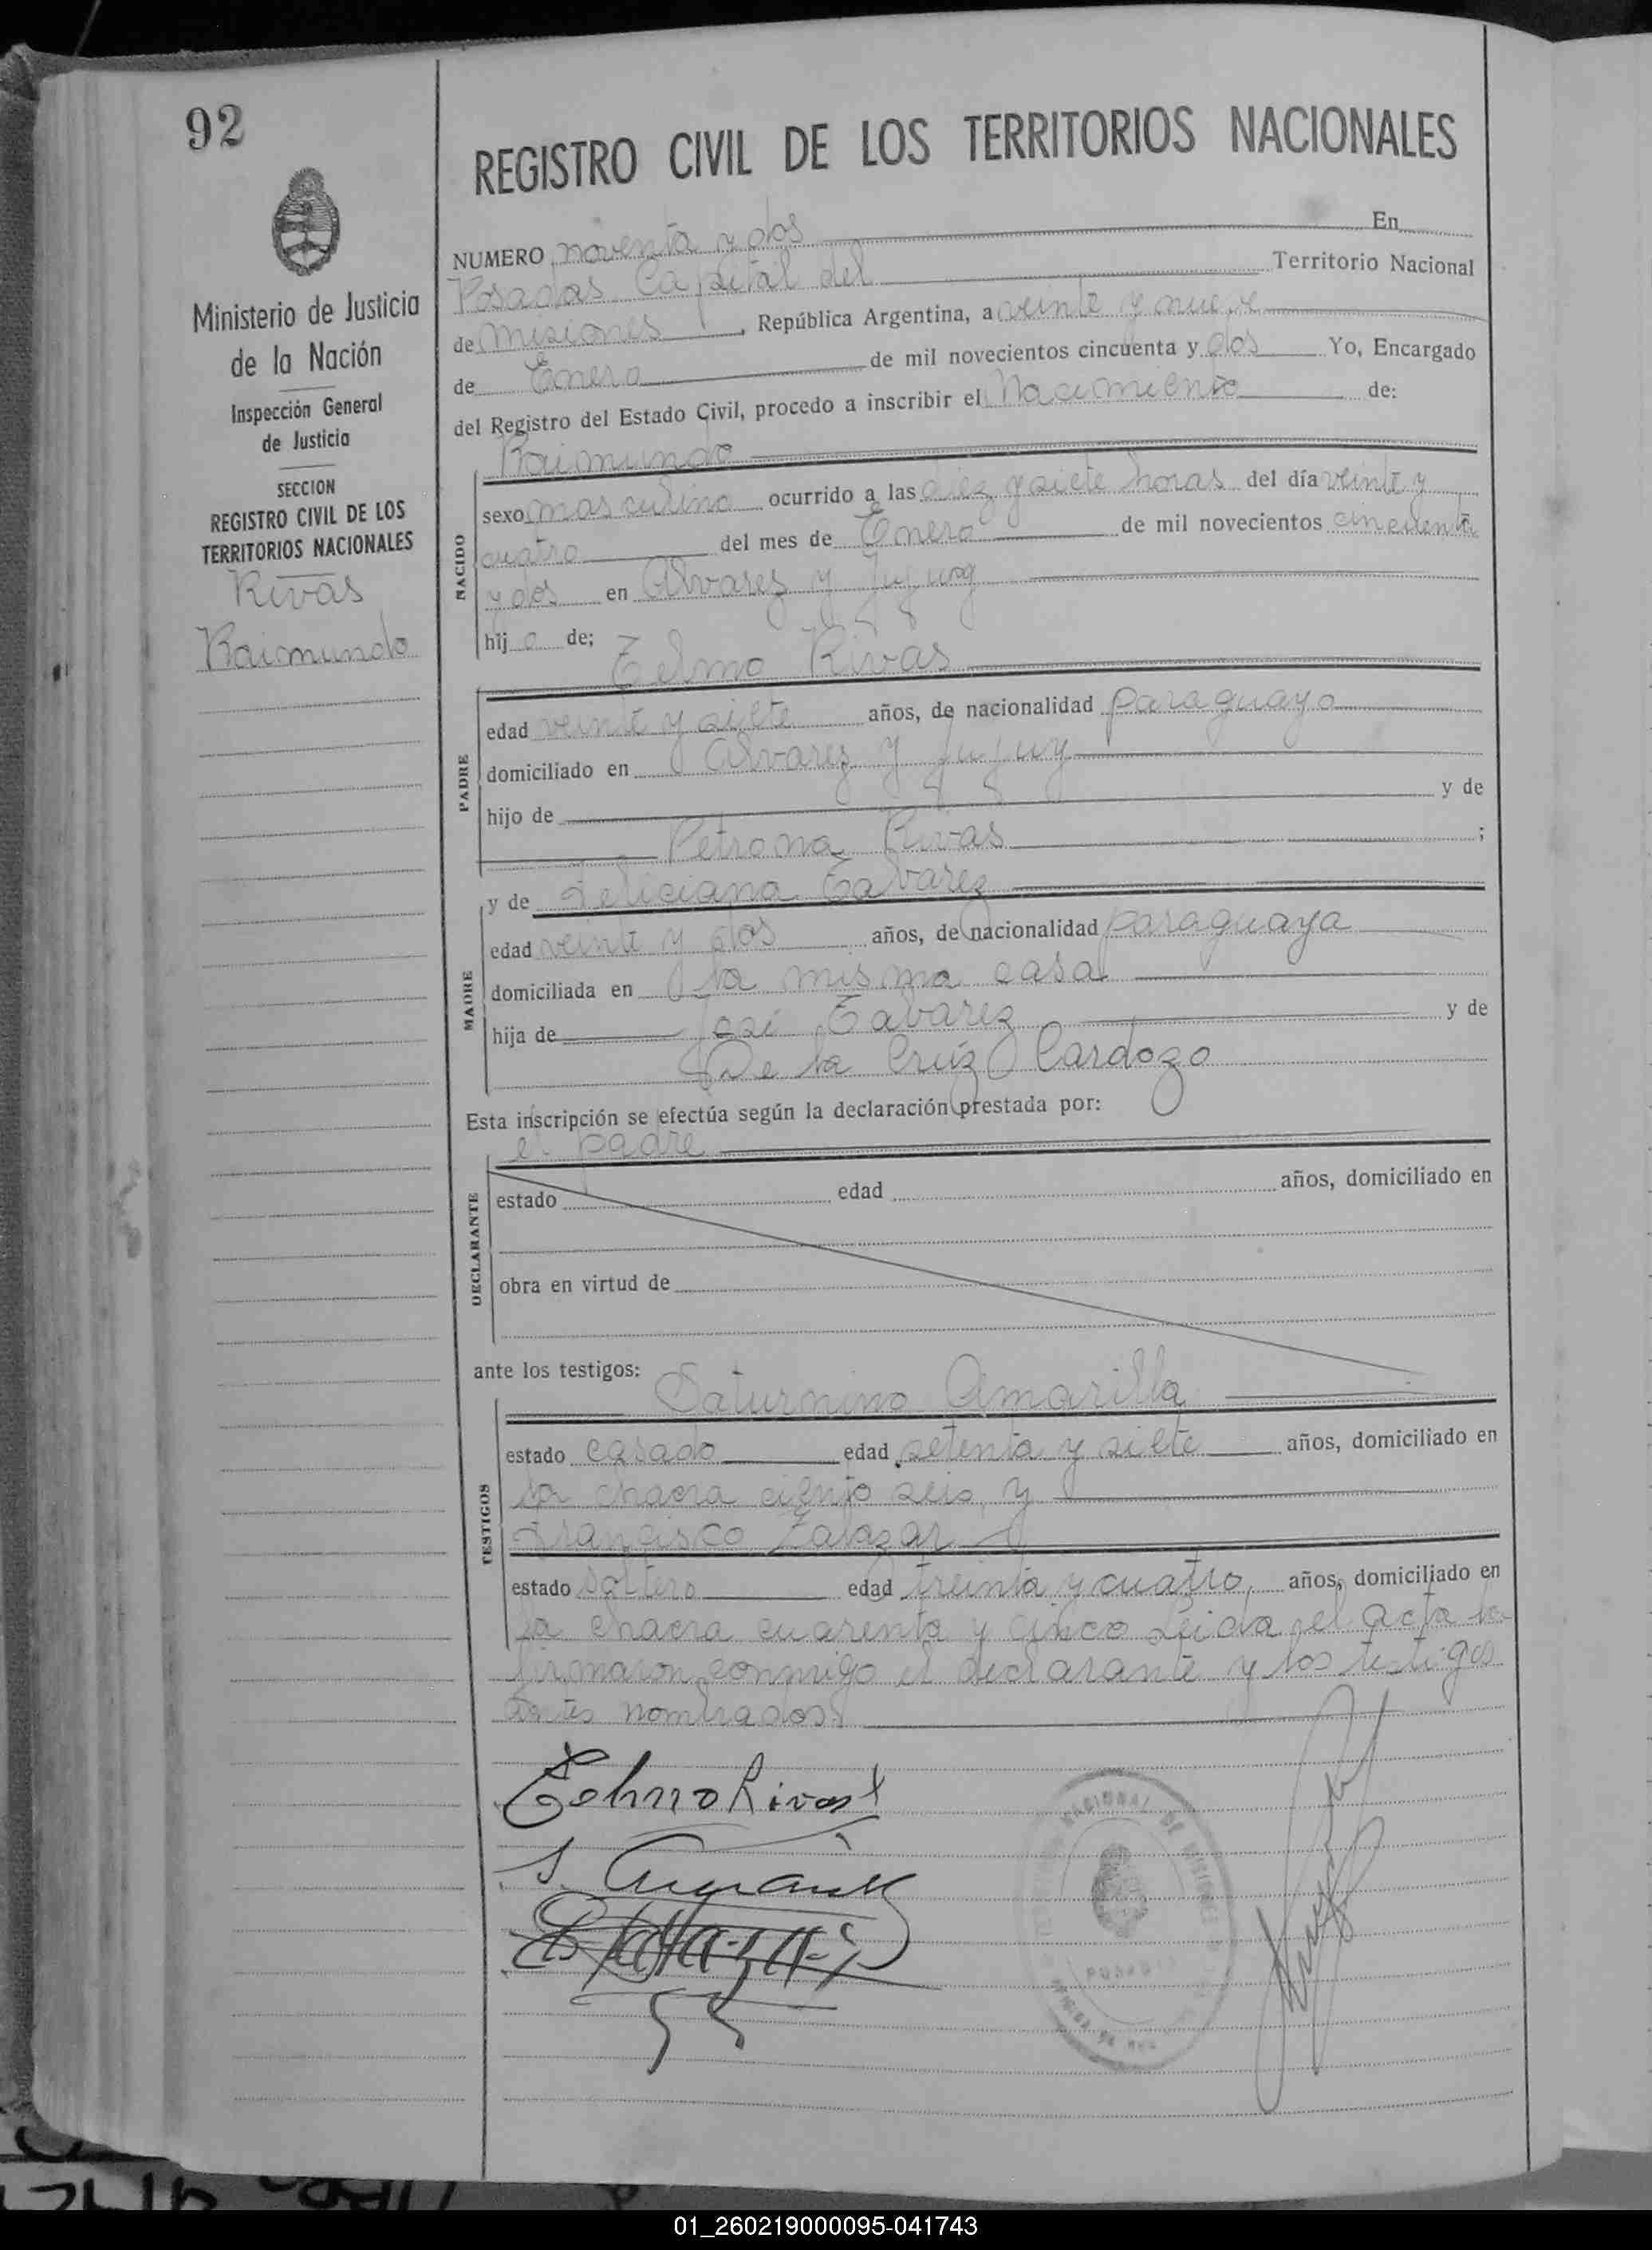 92
Ministerio de Justicia
de la Nación
Inspección General
de Justicia
SECCION
REGISTRO CIVIL DE LOS
TERRITORIOS NACIONALES
Rivas
Raimundo
REGISTRO CIVIL DE LOS TERRITORIOS NACIONALES
NUMERO noventa y dos En
Posadas Capital del Territorio Nacional
de Misiones, República Argentina, a veinte y nueve
de Enero de mil novecientos cincuenta y dos Yo, Encargado
del Registro del Estado Civil, procedo a inscribir el Nacimiento de:
Raimundo
NACIDO
sexo masculino ocurrido a las diez y siete horas del día veinte y
cuatro del mes de Enero de mil novecientos cincuenta
y dos en Alvarez y Jujuy
hijo de; Telmo Rivas
PADRE
edad veinte y siete años, de nacionalidad paraguayo
domiciliado en Alvarez y Jujuy
hijo de y de
Petrona Rivas ;
y de Feliciana Tabarez
MADRE
edad veinte y dos años, de nacionalidad paraguaya
domiciliada en la misma casa
hija de José Tabarez y de
De la Cruz Cardozo
Esta inscripción se efectúa según la declaración prestada por:
el padre
DECLARANTE
estado edad años, domiciliado en
obra en virtud de
ante los testigos:
Saturnino Amarilla
TESTIGOS
estado casado edad setenta y siete años, domiciliado en
la chacra ciento seis, y
Francisco Zalazar
estado soltero edad treinta y cuatro, años, domiciliado en
la chacra cuarenta y cinco Leida el acta la
firmaron conmigo el declarante y los testigos
antes nombrados.
Telmo Rivas
S. Amarilla
NACIONAL DE MISIONES
POSADAS
01_260219000095-041743